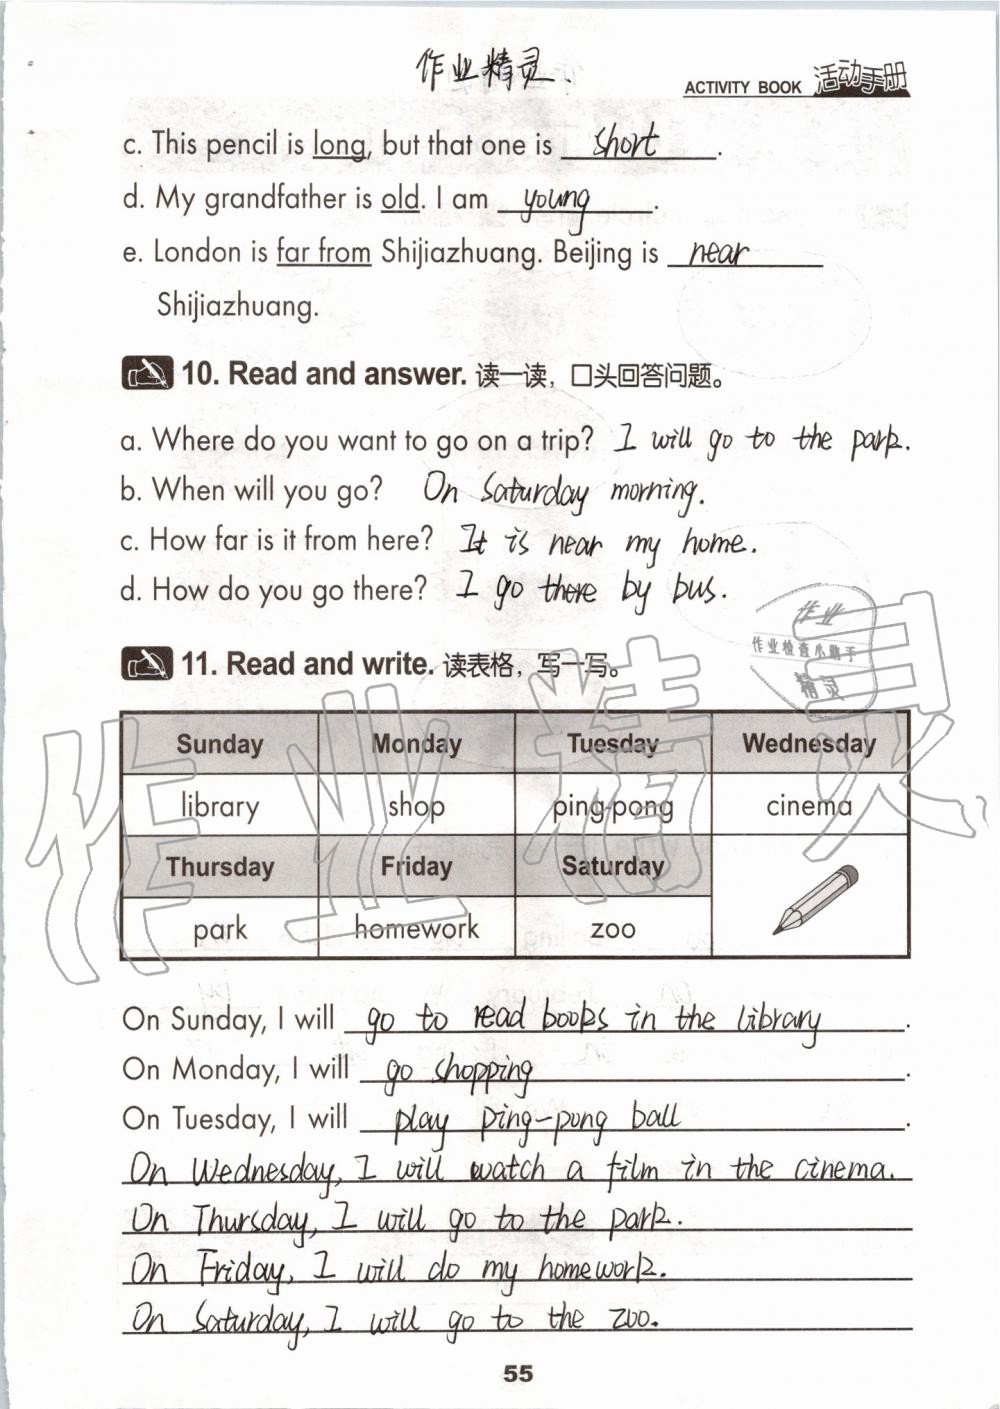 作业精灵.
ACTIVITY BOOK 活动手册
c. This pencil is long, but that one is short.
d. My grandfather is old. I am young.
e. London is far from Shijiazhuang. Beijing is near
Shijiazhuang.
10. Read and answer. 读一读，口头回答问题。
a. Where do you want to go on a trip? I will go to the park.
b. When will you go? On Saturday morning.
c. How far is it from here? It is near my home.
d. How do you go there? I go there by bus.
作业
作业检查小助手
精灵
11. Read and write. 读表格，写一写。
作业精灵
Sunday Monday Tuesday Wednesday
library shop ping-pong cinema
Thursday Friday Saturday
park homework zoo
On Sunday, I will go to read books in the library.
On Monday, I will go shopping.
On Tuesday, I will play ping-pong ball.
On Wednesday, I will watch a film in the cinema.
On Thursday, I will go to the park.
On Friday, I will do my homework.
On Saturday, I will go to the zoo.
55